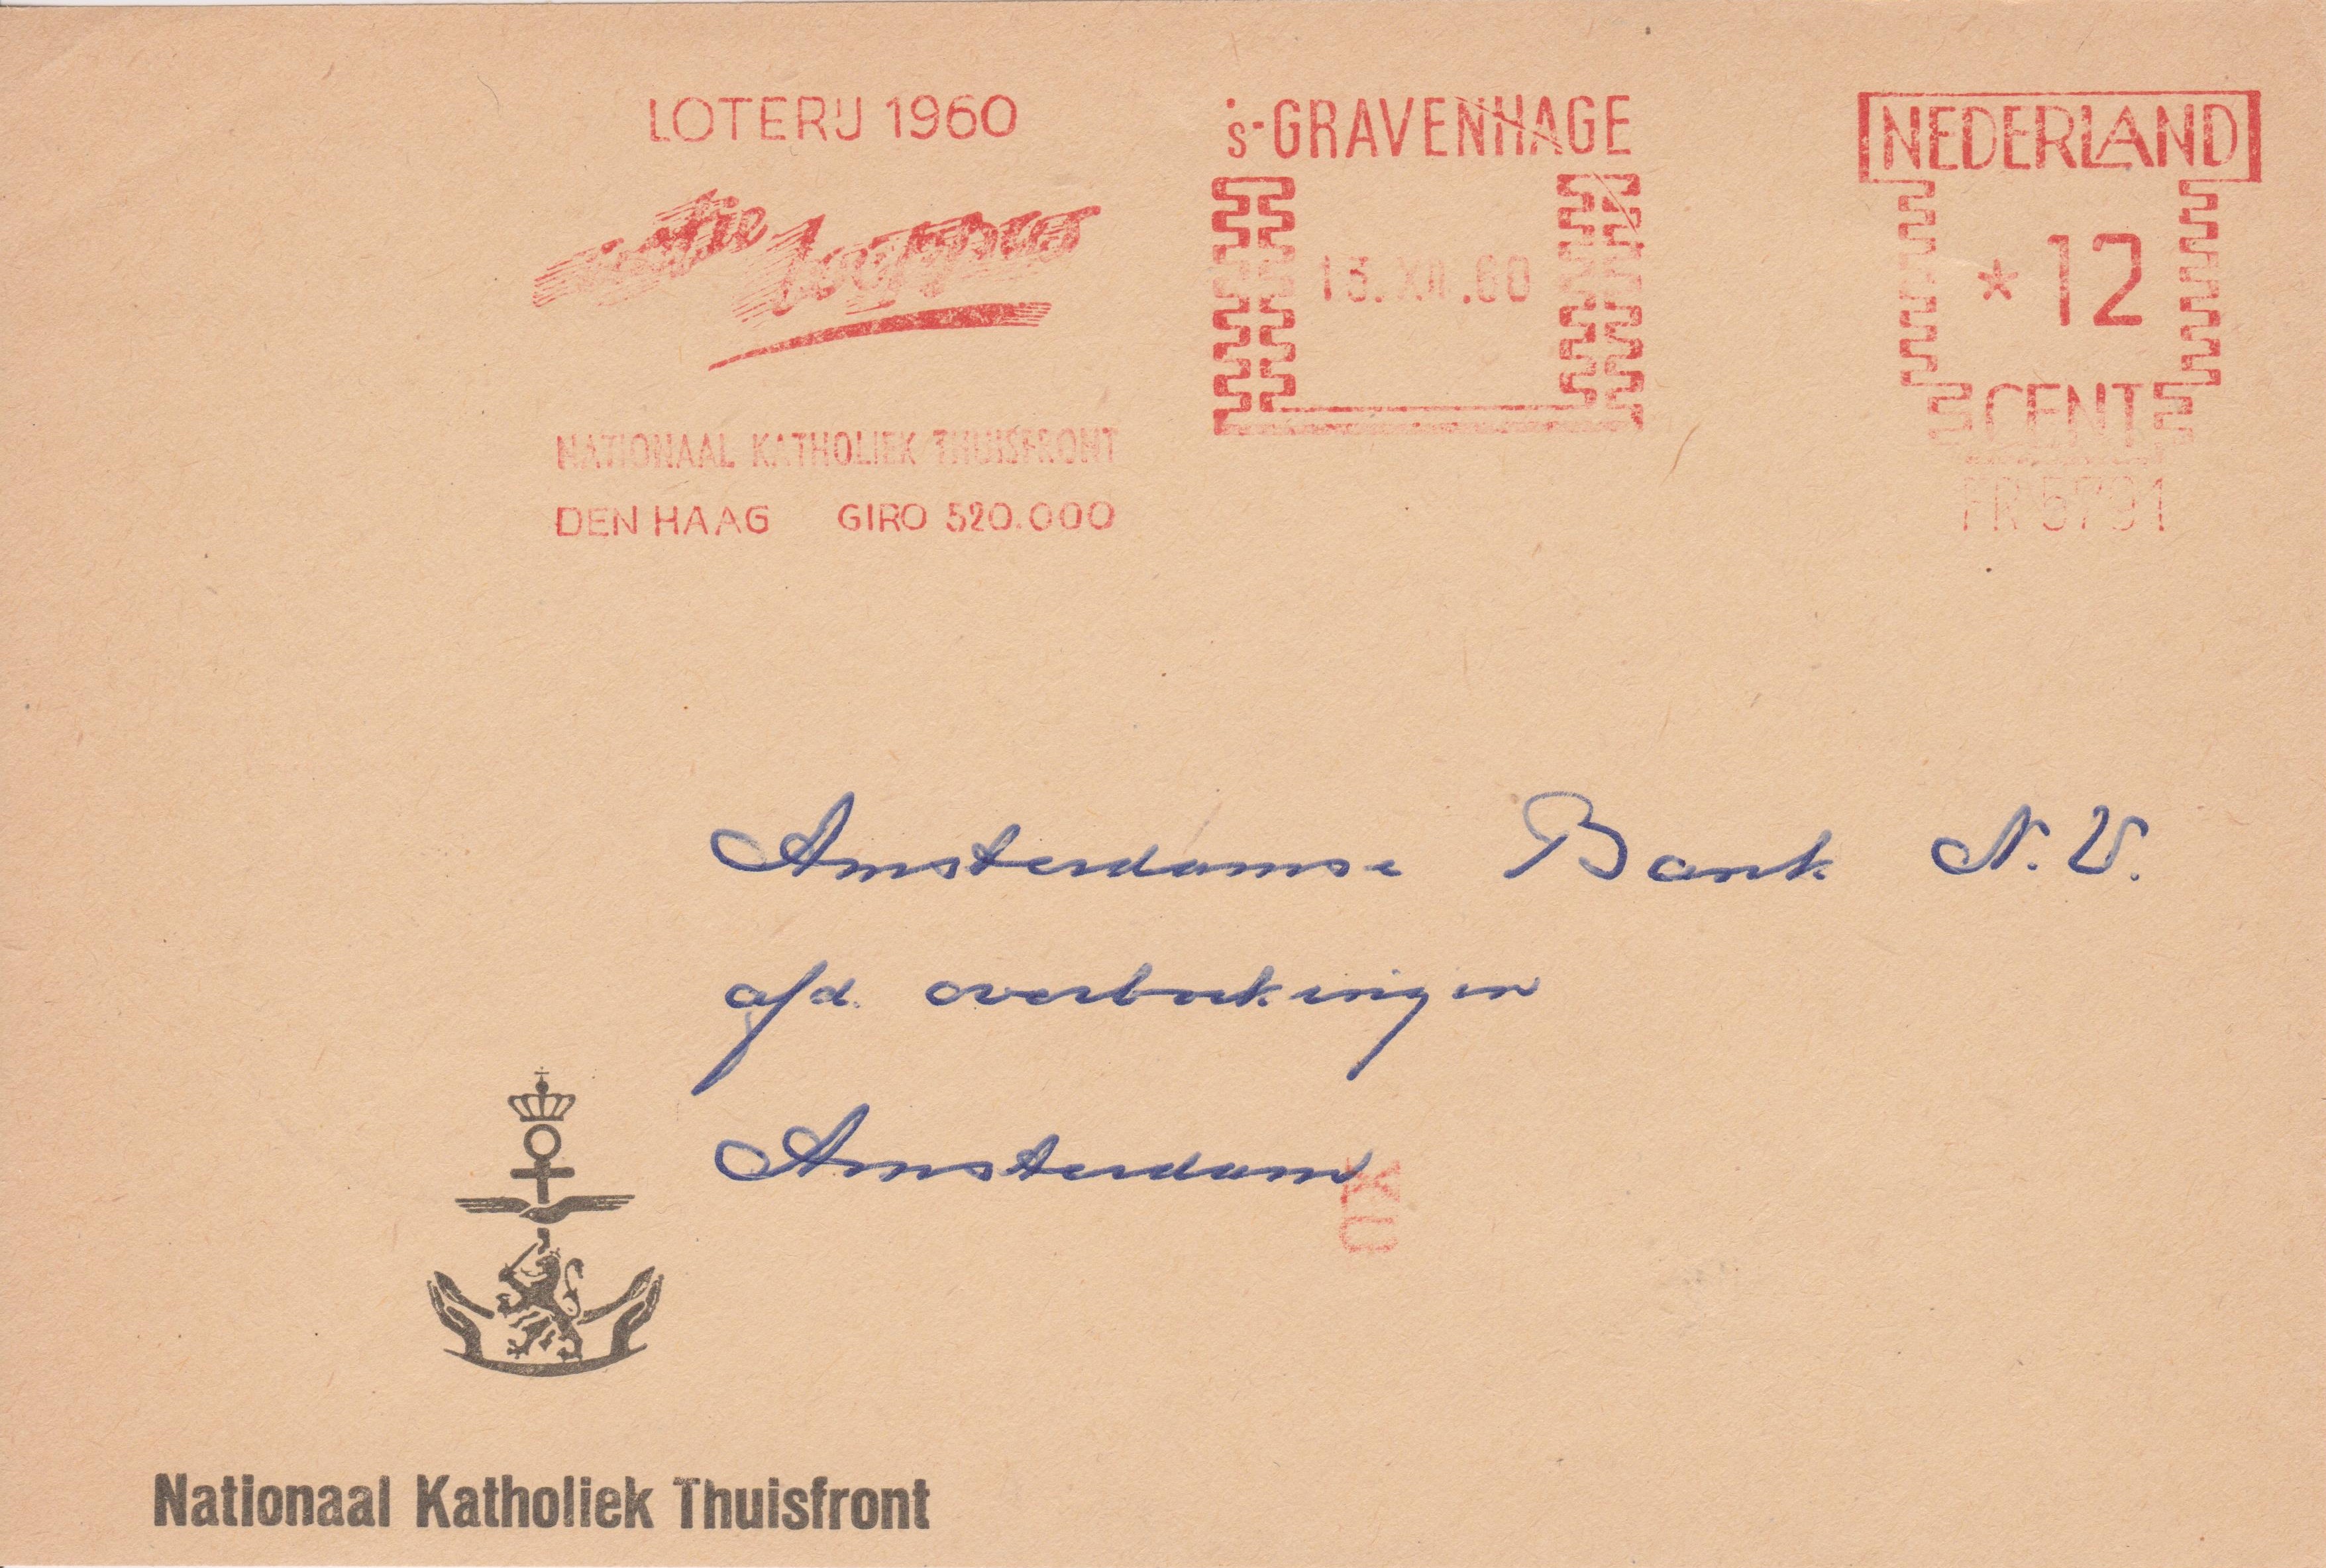 LOTERIJ 1960
actie
NATIONAAL KATHOLIEK THUISFRONT
DEN HAAG GIRO 520.000
's-GRAVENHAGE
13.XII.60
NEDERLAND
* 12
CENT
FR 5791
Amsterdamse Bank N.V.
afd. overboekingen
Amsterdam
Nationaal Katholiek Thuisfront